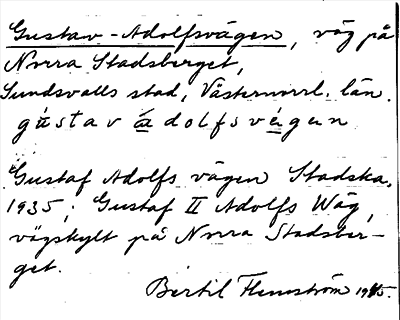 Gustav-Adolfsvägen, väg på
Norra Stadsberget,
Sundsvalls stad, Västernorrl. län.
gústav a dolfsvägen
Gustaf Adolfs vägen Stadska.
1935; Gustaf II Adolfs Wäg,
vägskylt på Norra Stadsber-
get.
Bertil Flemström 1945.